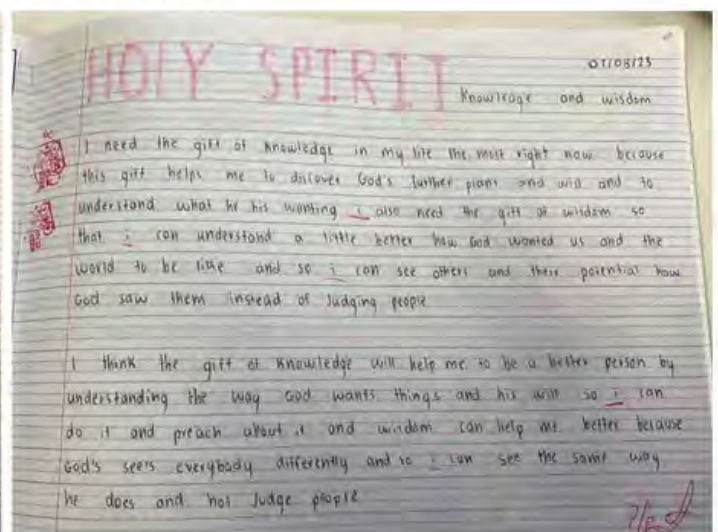 HOLY SPIRIT
07/03/23
Knowledge and wisdom
I need the gift of knowledge in my life the most right now because
this gift helps me to discover God's further plans and will and to
understand what he his wanting i also need the gift of wisdom so
that i can understand a little better how God wanted us and the
world to be like and so i can see others and their potential how
God saw them instead of Judging people
I think the gift of knowledge will help me to be a better person by
understanding the way God wants things and his will so i can
do it and preach about it and wisdom can help me better because
God's sees everybody differently and so i can see the same way
he does and not Judge people